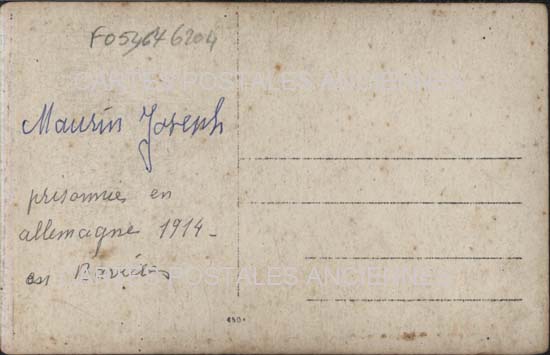 F054646204
CARTES POSTALES ANCIENNES
Maurin Joseph
prisonnié en
allemagne 1914-
en Bavière
CARTES POSTALES ANCIENNES